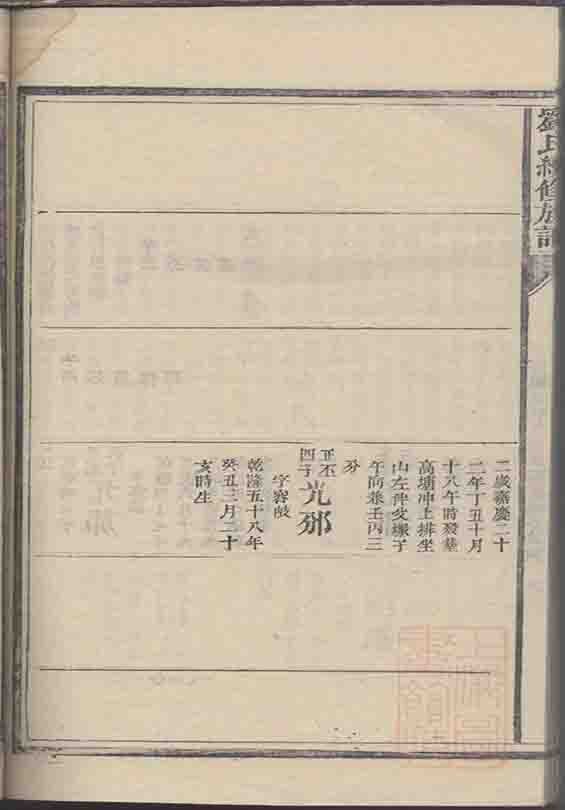 劉氏續修族譜
二歲嘉慶二十
二年丁丑十月
十八午時歿墓
高塘冲上排坐
山左伴父塚子
午向兼壬丙三
分
正丕
四子
光郷
字容皎
乾隆五十八年
癸丑三月二十
亥時生